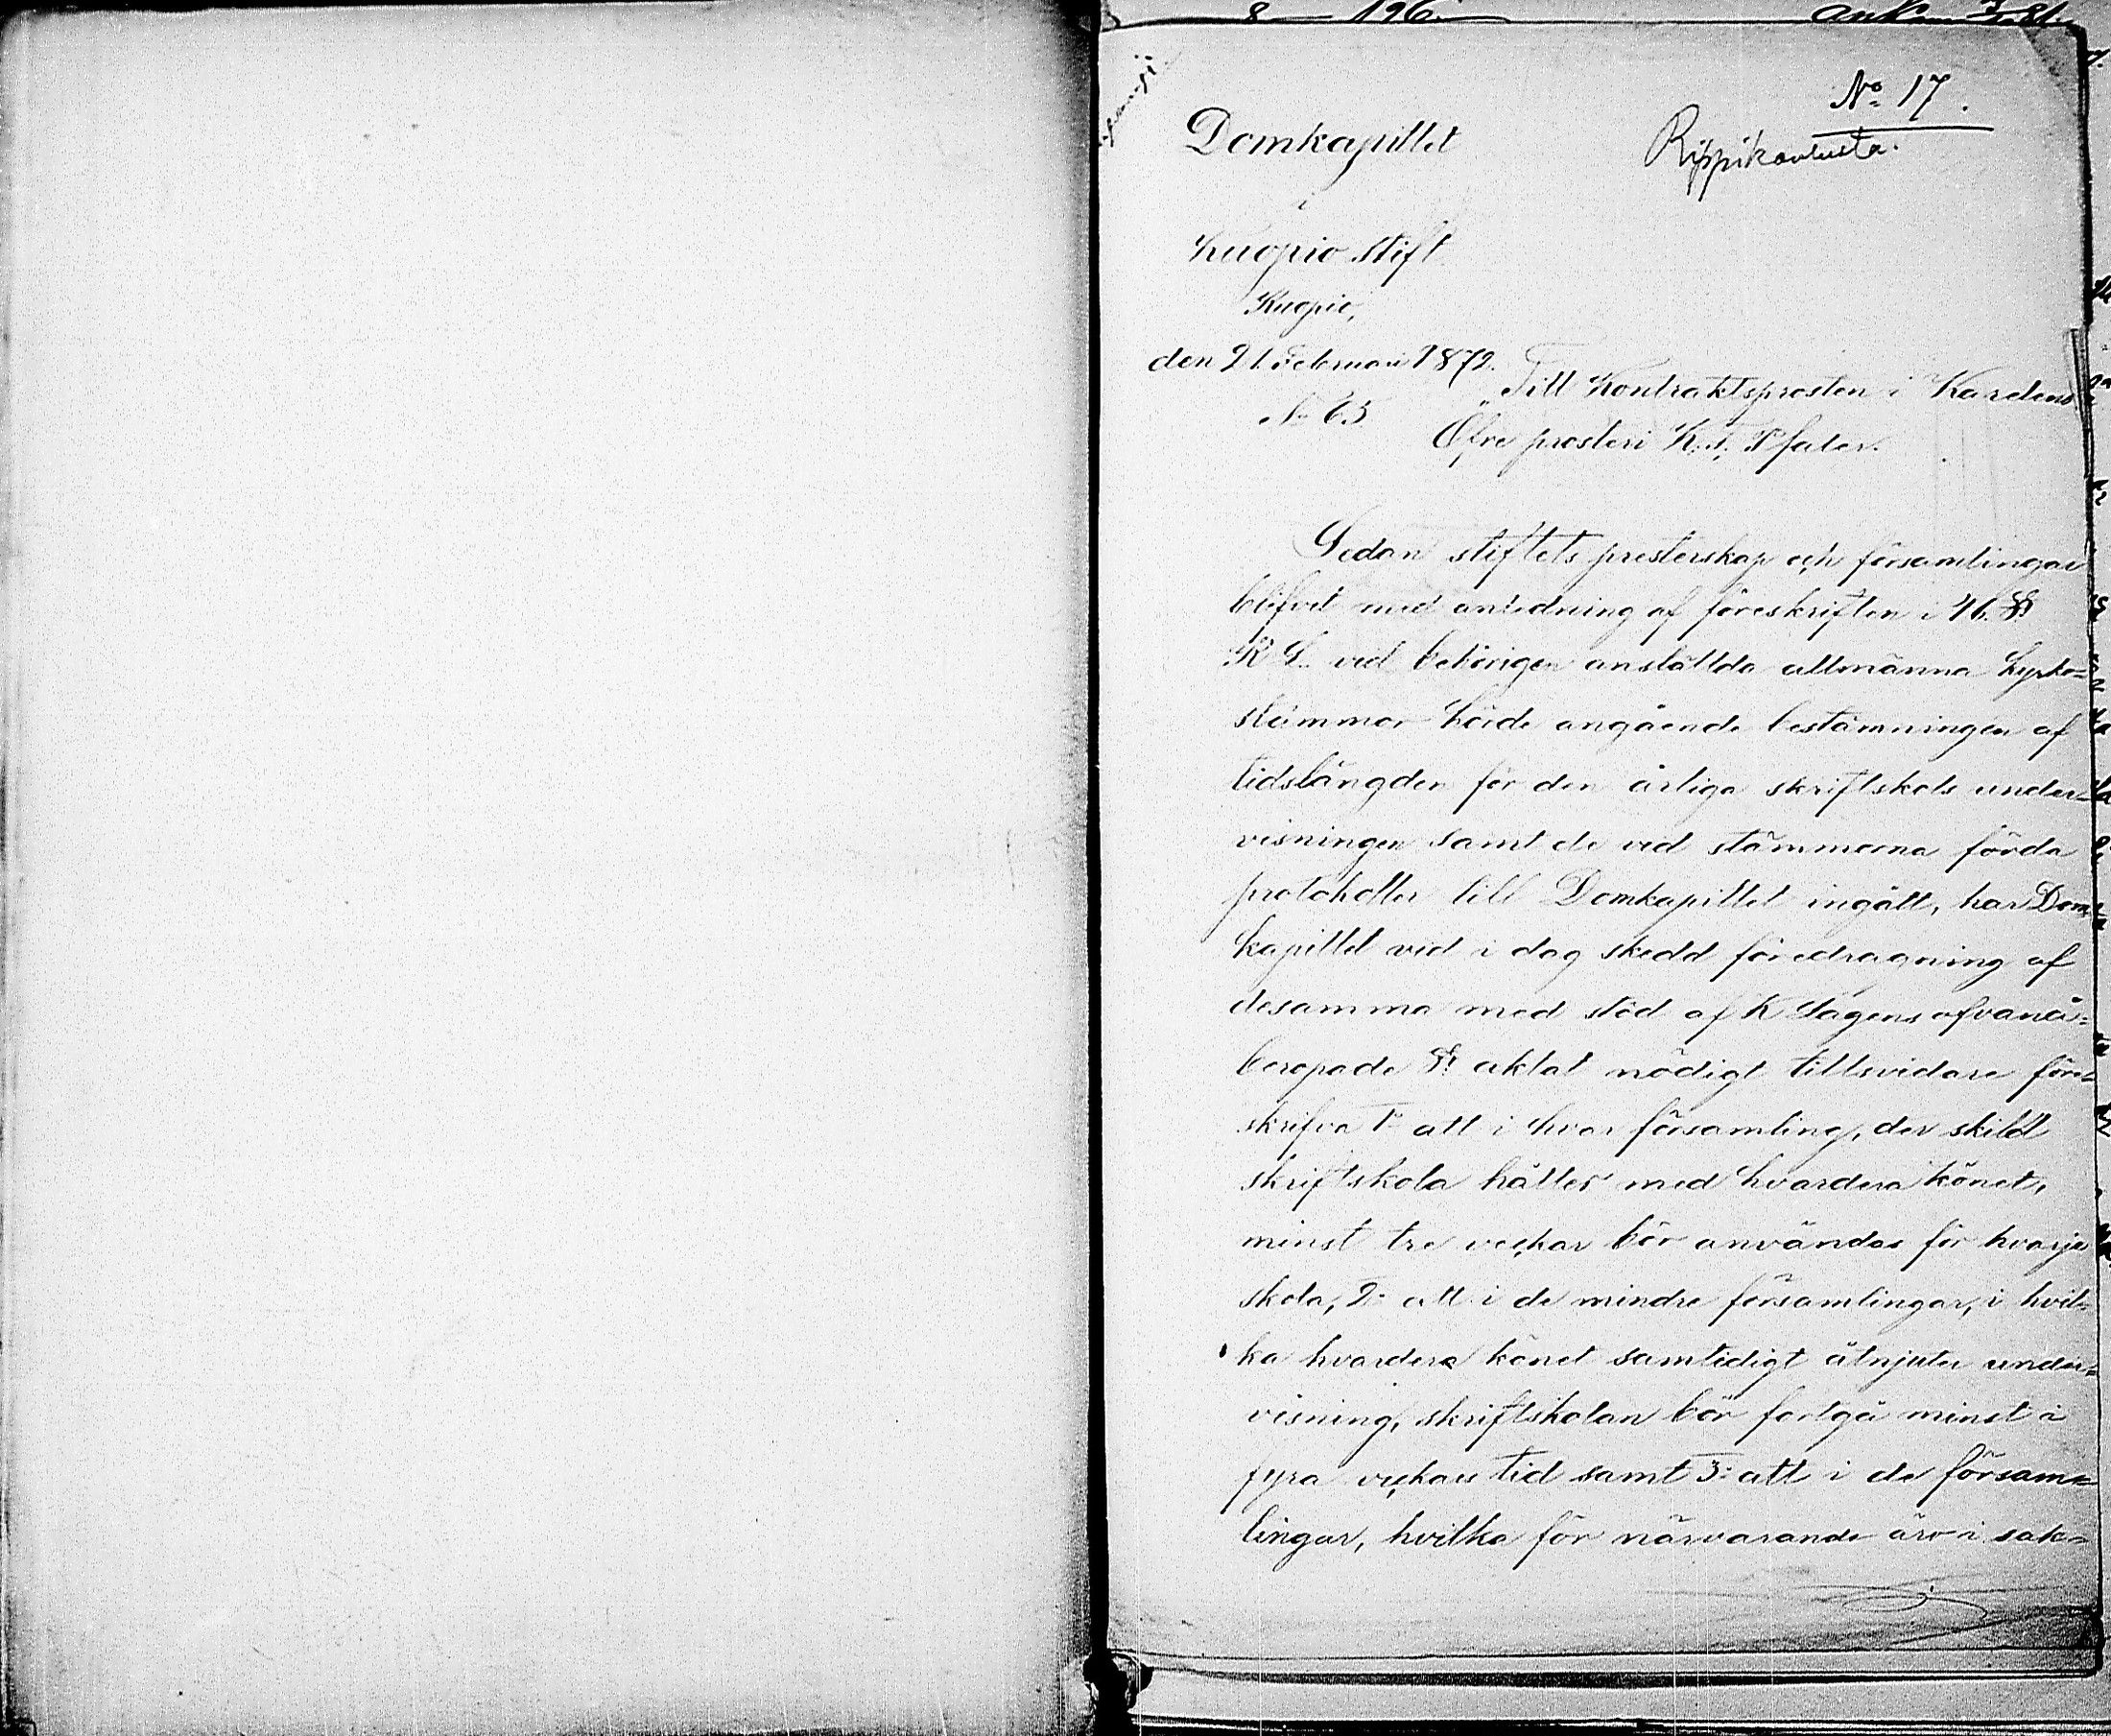 8 196
No 17.
Domkapitlet
Rippikoulusta.
i
Kuopio stift
Kuopio,
den 21. Februari 1872.
No 65.
Till Kontraktsprosten i Karelens
Öfre prosteri K. d.
Sedan stiftets presterskap och församlingar
blifvit med anledning af föreskriften i 46. §.
K L. vid behörigen anstälda allmänna kyrko-
stämmor hörde angående bestämningen af
tidslängden för den årliga skriftskols under-
visningen samt de vid stämmorna förda
protokoller till Domkapitlet ingått, har Dom-
kapitlet vid i dag skedd föredragning af
desamma med stöd af K Lagens ofvanå-
beropade §. aktat nödigt tillsvidare före-
skrifva 1o att i hvar församling, der skild
skriftskola hålles med hvardera könet,
minst tre veckor bör användas för hvarje
skola, 2o att i de mindre församlingar, i hvil-
ka hvardera könet samtidigt åtnjuter under-
visning, skriftskolan bör fortgå minst i
fyra veckors tid samt 3o att i de försam-
lingar, hvilka för närvarande äro i sak-